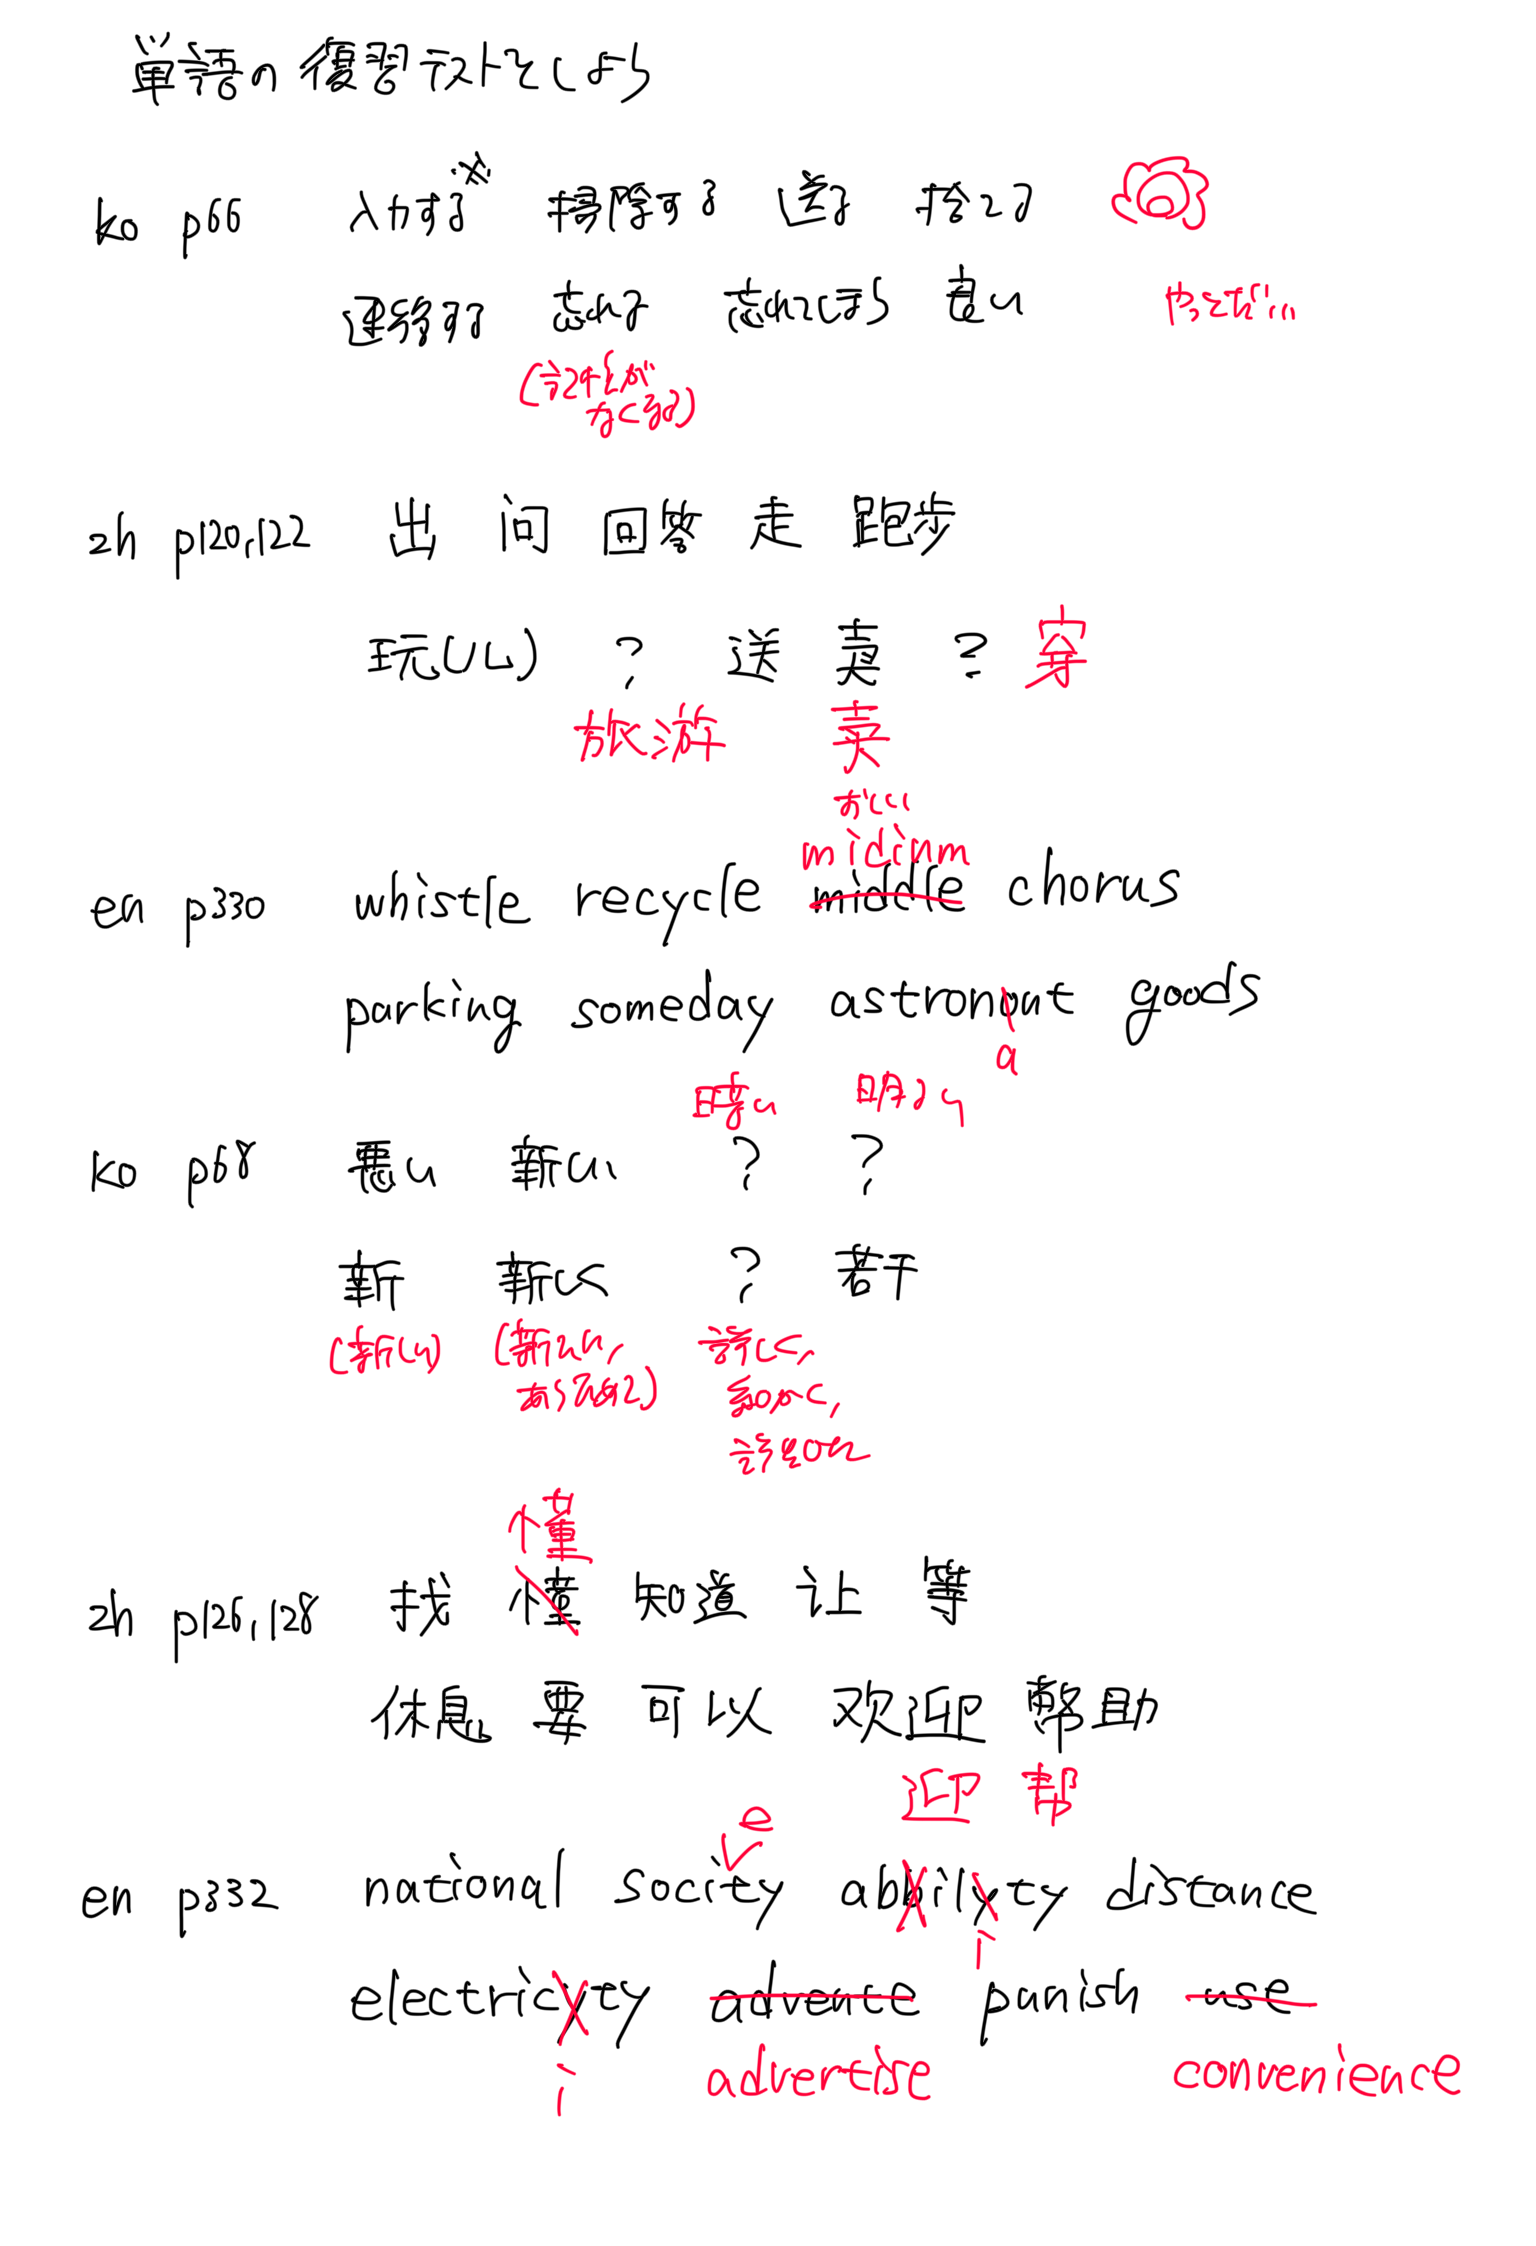 単語の復習テストをしよう
ko p66 入力する※ 掃除する 送る 捨てる
連絡する 忘れる 忘れてしまう 良い やったぜ!...
(記憶が
なくなる)
zh p120,122 出 问 回答 走 跑步
玩(儿) ? 送 卖 ? 穿
旅游 卖
おしい
midium
en p330 whistle recycle middle chorus
parking someday astronout goods
a
暗い 明るい
ko p68 悪い 新しい ? ?
新 新しく ? 若干
(新しい) (新たに, 詳しく,
あらためて) 細かく,
懂
zh p126,128 找 懂 知道 让 等
休息 要 可以 欢迎 幫助
迎 帮
e
en p332 national socity abbilyty distance
i
electricyty advente punish use
i advertise convenience